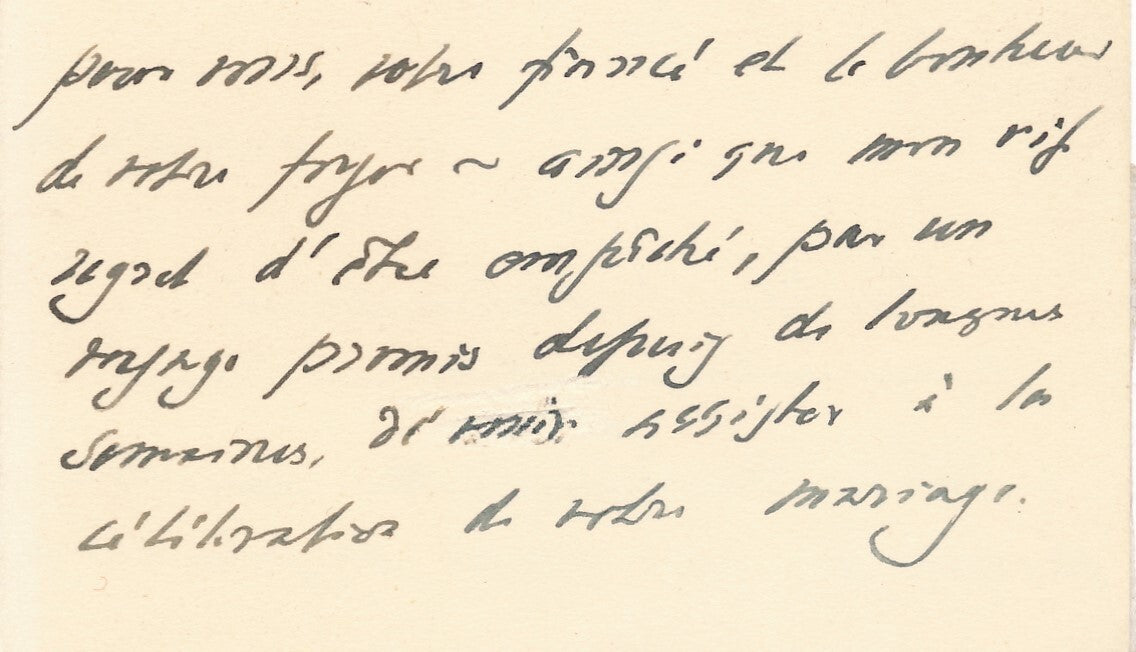 pour vous, votre fiancé et le bonheur
de votre foyer ~ ainsi que mon vif
regret d'être empêché, par un
voyage promis depuis de longues
semaines, de venir assister à la
célébration de votre mariage.